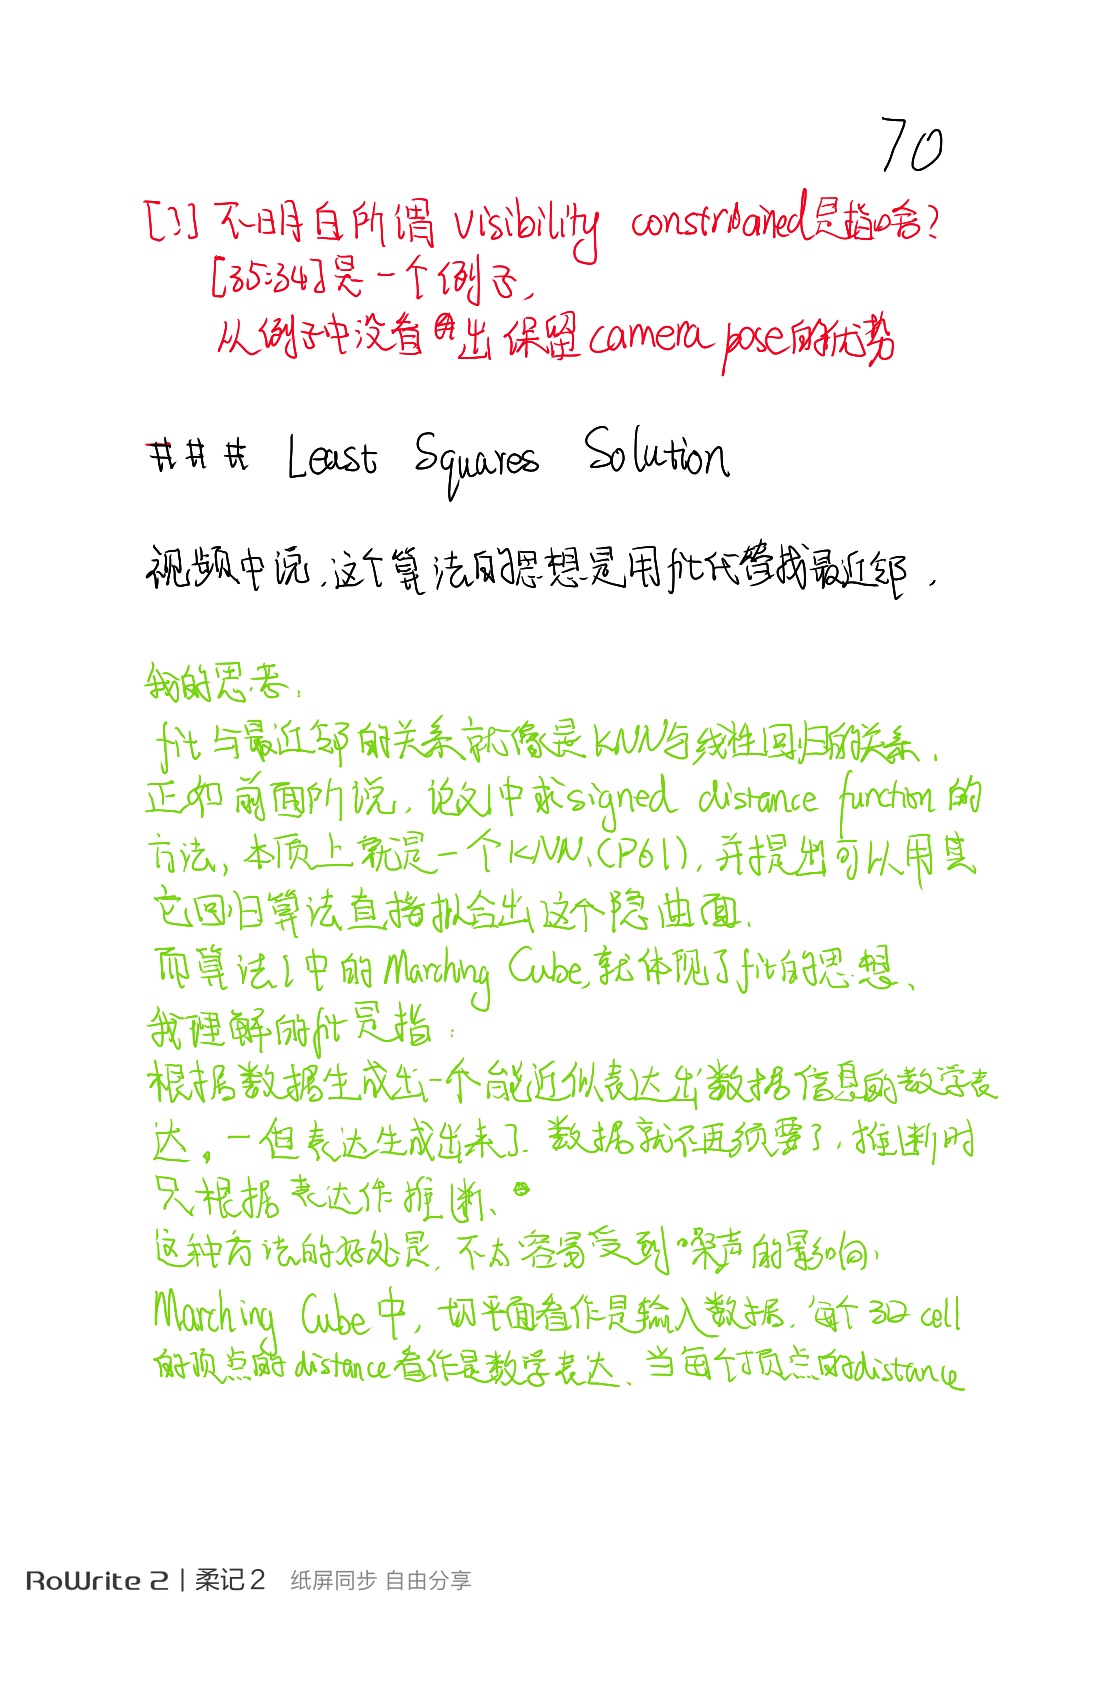 70
[3] 不明白所谓 visibility constrained是指啥?
[35:34]是一个例子,
从例子中没看出保留camera pose的优势
### Least Squares Solution
视频中说,这个算法的思想是用fit代替找最近邻.
我的思考:
fit与最近邻的关系就像是KNN与线性回归的关系.
正如前面所说,论文中求signed distance function的
方法,本质上就是一个KNN.(P61),并提出可以用其
它回归算法直接拟合出这个隐曲面.
而算法1中的Marching Cube,就体现了fit的思想、
我理解的fit是指:
根据数据生成出一个能近似表达出数据信息的数学表
达。一但表达生成出来了.数据就不再须要了,推断时
只根据表达作推断、
这种方法的好处是,不太容易受到噪声的影响,
Marching Cube中,切平面看作是输入数据.每个3D cell
的顶点的distance看作是数学表达、当每个顶点的distance
RoWrite 2 | 柔记2 纸屏同步 自由分享